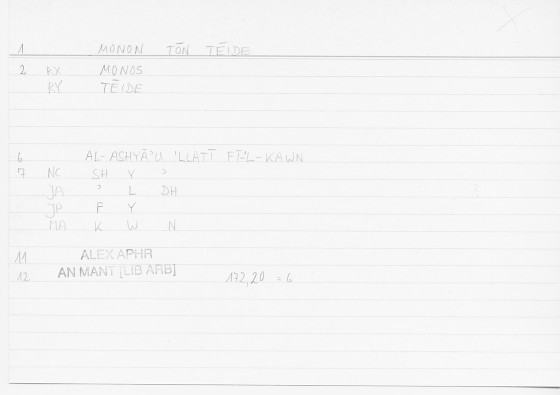 1 MONON TŌN TĒIDE
2 RX MONOS
RY TĒIDE
6 AL-ASHYĀʾU ʾLLATĪ FĪ-ʾL-KAWN
7 NC SH Y ʾ
JA ʾ L DH
JP F Y
MA K W N
11 ALEX APHR
12 AN MANT [LIB ARB] 172,20 = 6